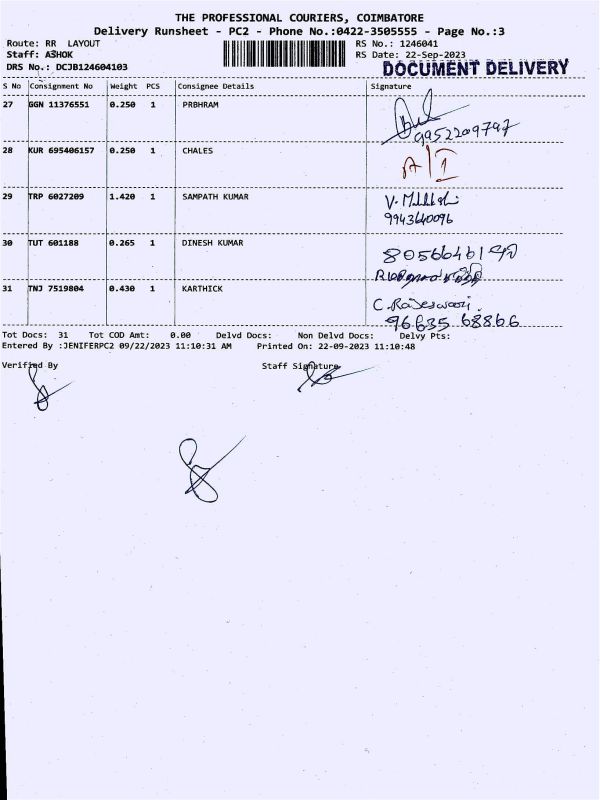 THE PROFESSIONAL COURIERS, COIMBATORE
Delivery Runsheet - PC2 - Phone No.:0422-3505555 - Page No.:3
Route: RR LAYOUT RS No.: 1246041
Staff: ASHOK RS Date: 22-Sep-2023
DRS No.: DCJB124604103 DOCUMENT DELIVERY
S No Consignment No Weight PCS Consignee Details Signature
27 GGN 11376551 0.250 1 PRBHRAM
9952209797
28 KUR 695406157 0.250 1 CHALES
A/I
29 TRP 6027209 1.420 1 SAMPATH KUMAR V.
9943640096
30 TUT 601188 0.265 1 DINESH KUMAR
31 TNJ 7519804 0.430 1 KARTHICK C. Rajeswari.
96635 68866
Tot Docs: 31 Tot COD Amt: 0.00 Delvd Docs: Non Delvd Docs: Delvy Pts:
Entered By :JENIFERPC2 09/22/2023 11:10:31 AM Printed On: 22-09-2023 11:10:48
Verified By Staff Signature